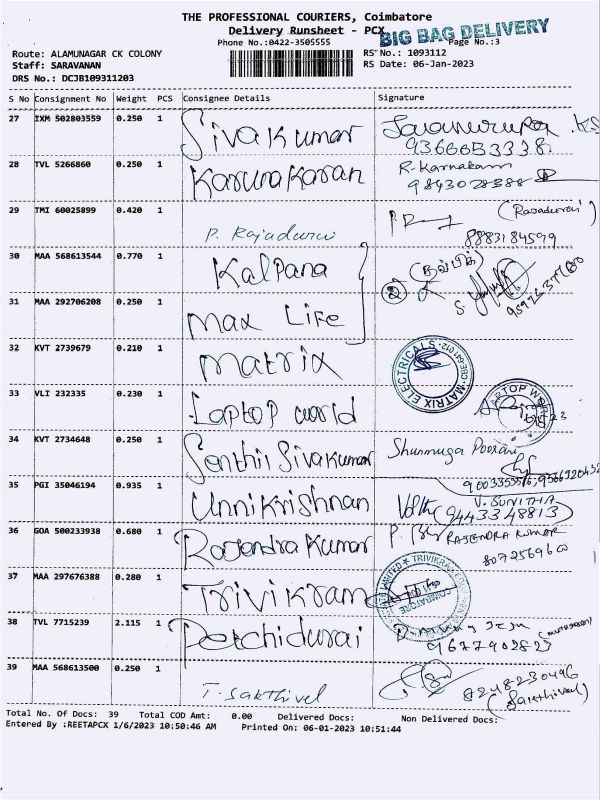 THE PROFESSIONAL COURIERS, Coimbatore
Delivery Runsheet - PCX
BIG BAG DELIVERY
Phone No.:0422-3505555
Page No.:3
Route: ALAMUNAGAR CK COLONY
RS No.: 1093112
Staff: SARAVANAN
RS Date: 06-Jan-2023
DRS No.: DCJB109311203
S No Consignment No Weight PCS Consignee Details Signature
27 IXM 502803559 0.250 1 Sivakumar
28 TVL 5266860 0.250 1 Karunakaran R. Karnakaran
9843028388
29 TMI 60025899 0.420 1 P. Rajadurai
8883184599
30 MAA 568613544 0.770 1 Kalpana
31 MAA 292706208 0.250 1 Max Life
32 KVT 2739679 0.210 1 Matrix MATRIX ELECTRICALS
33 VLI 232335 0.230 1 Laptop world
34 KVT 2734648 0.250 1 Senthil Sivakumar Shunmuga Poorani
35 PGI 35046194 0.935 1 Unnikrishnan V. SUNITHA
(9443348813)
36 GOA 500233938 0.680 1 Rajendra Kumar RAJENDRA KUMAR
8072569600
37 MAA 297676388 0.280 1 Trivikram
COIMBATORE
38 TVL 7715239 2.115 1 Petchidurai
39 MAA 568613500 0.250 1 T. Sakthivel 8248230496
(Sakthivel)
Total No. Of Docs: 39 Total COD Amt: 0.00 Delivered Docs: Non Delivered Docs:
Entered By :REETAPCX 1/6/2023 10:50:46 AM Printed On: 06-01-2023 10:51:44